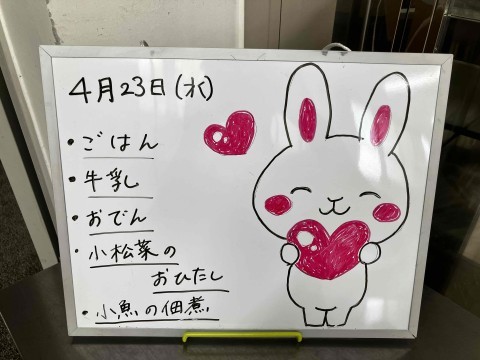 4月23日(水)
・ごはん
・牛乳
・おでん
・小松菜の
おひたし
・小魚の佃煮